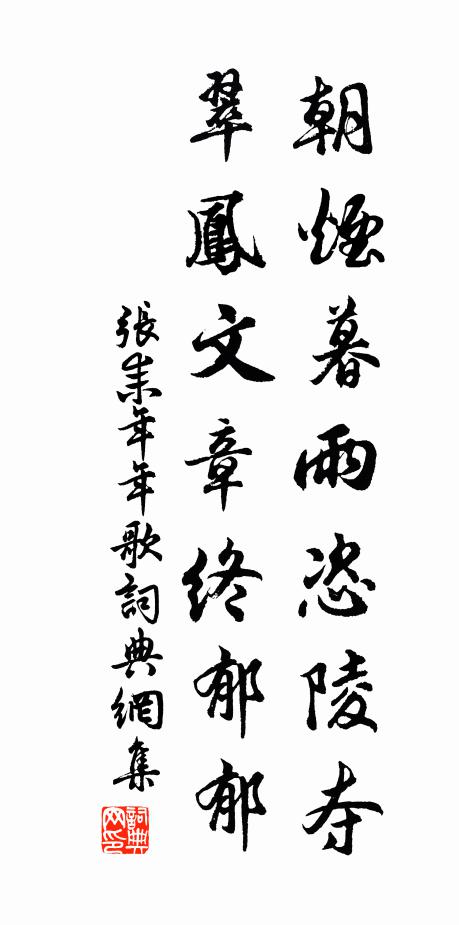 朝煙暮雨恣陵夺
翠鳳文章終郁郁
張耒年年歌詞典網集
詞典网印